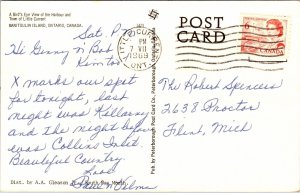 A Bird's Eye View of the Harbour and
Town of Little Current
MANITOULIN ISLAND, ONTARIO, CANADA.
Sat. P.M.
Hi Genny n Bob
X marks our spot
for tonight, last
night was Killarney
and the night before
was Collins Inlet.
Beautiful Country
Love
Dist. by A.A. Gleason
POST
CARD
LITTLE CURRENT
PM
7 VII
1969
ONT.
6
CANADA
The Robert Spencers
2638 Proctor
Flint, Mich